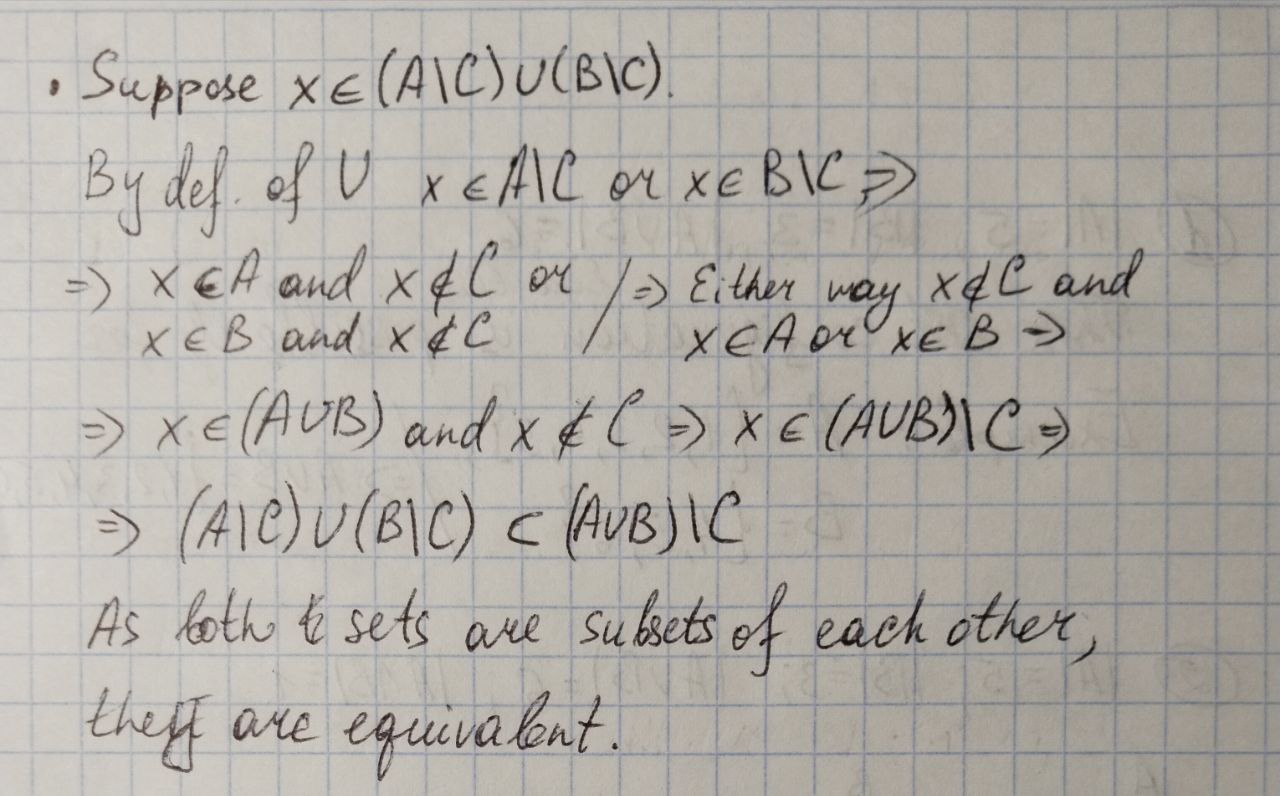 • Suppose x ∈ (A\C) ∪ (B\C).
By def. of ∪ x ∈ A\C or x ∈ B\C ⇒
⇒ x ∈ A and x ∉ C or / ⇒ Either way x ∉ C and
x ∈ B and x ∉ C / x ∈ A or x ∈ B ⇒
⇒ x ∈ (A∪B) and x ∉ C ⇒ x ∈ (A∪B)\C ⇒
⇒ (A\C) ∪ (B\C) ⊂ (A∪B)\C
As both sets are subsets of each other,
they are equivalent.